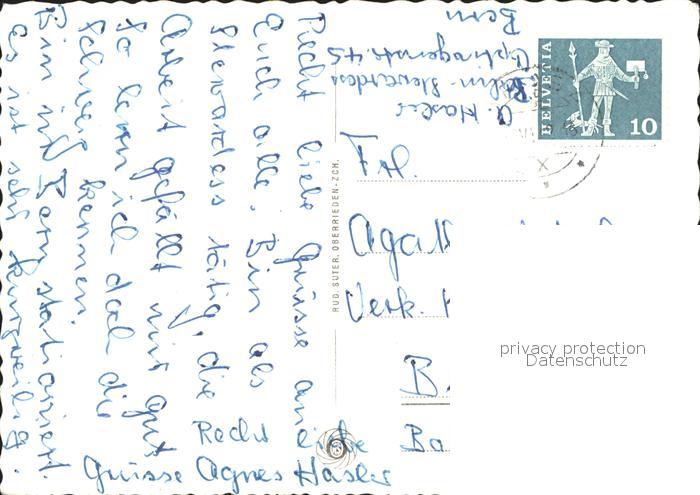 Recht liebe Grüsse an
Euch alle. Bin als
Stewardess tätig, die
Arbeit gefällt mir gut
So lern ich doch die
Schweiz kennen.
Bin in Bern stationiert.
Es ist sehr kurzweilig.
Recht liebe
Grüsse Agnes Hasler
A. Hasler
Bahn-Stewardess
45
Bern
HELVETIA
10
RUD. SUTER, OBERRIEDEN-ZCH.
Frl.
Agat
Verk.
B.
Ba
privacy protection
Datenschutz